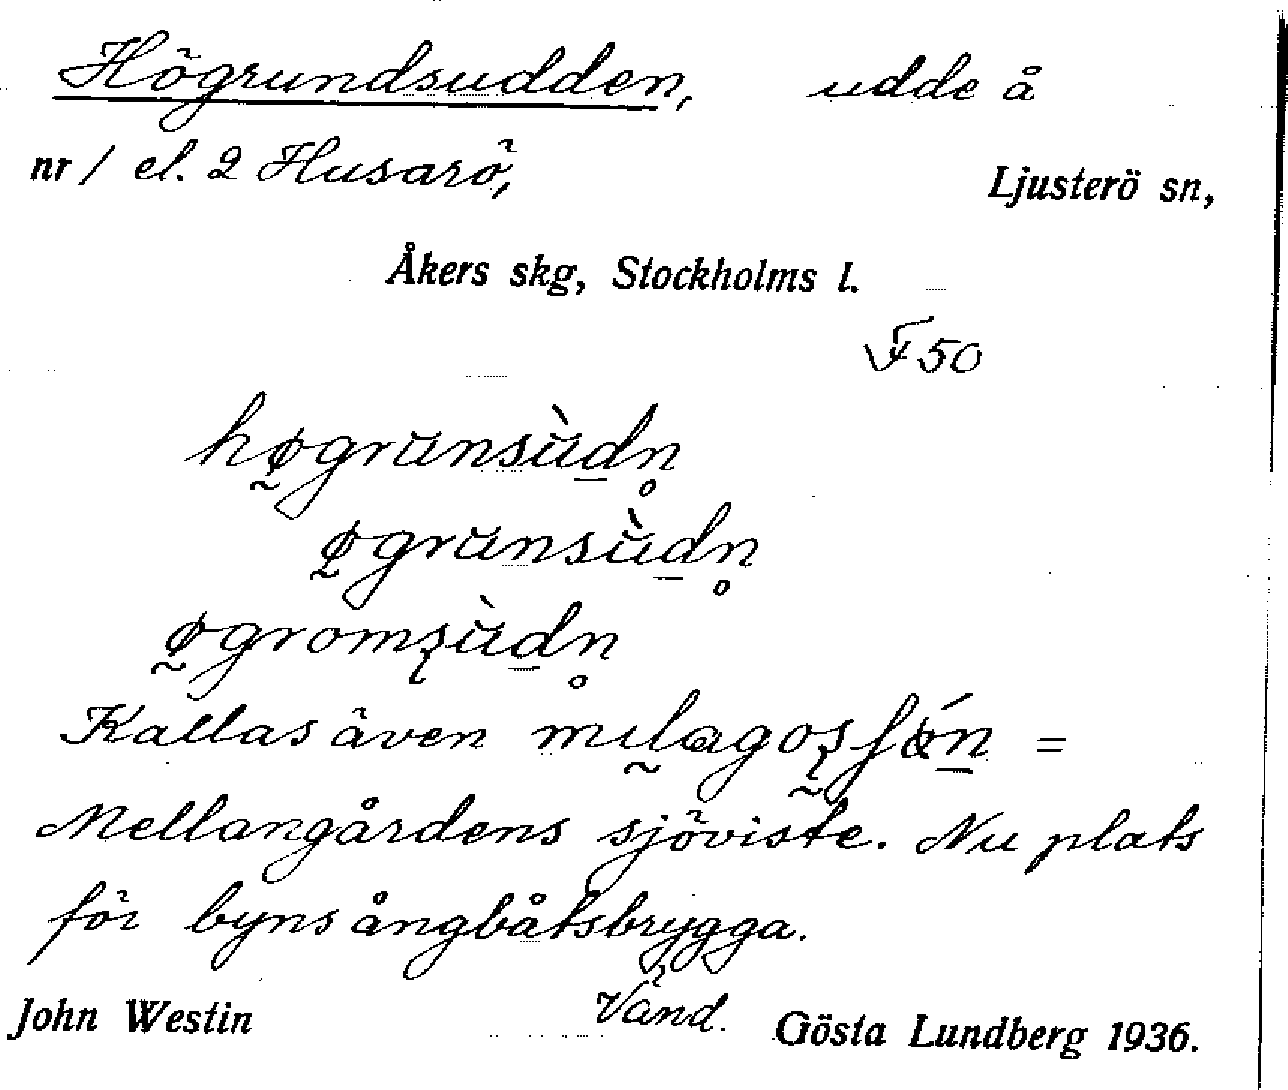 Högrundsudden, udde å
nr 1 el. 2 Husarö, Ljusterö sn,
Åkers skg, Stockholms l.
F 50
hø̰grünsǜd̲n̥
ø̰grünsǜd̲n̥
ø̰gromʂǜd̲n̥
Kallas även =
Mellangårdens sjöviste. Nu plats
för byns ångbåtsbrygga.
Vänd.
John Westin Gösta Lundberg 1936.